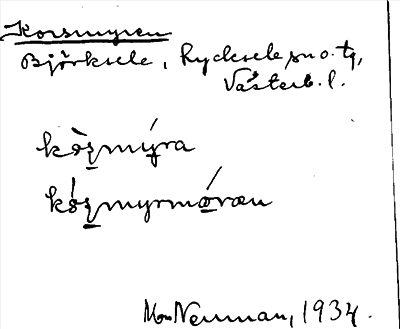 Korsmyren
Björksele, Lycksele sn o. tg,
Västerb. l.
kòs̱mýra
kós̱myrmóræn
Neuman, 1934.